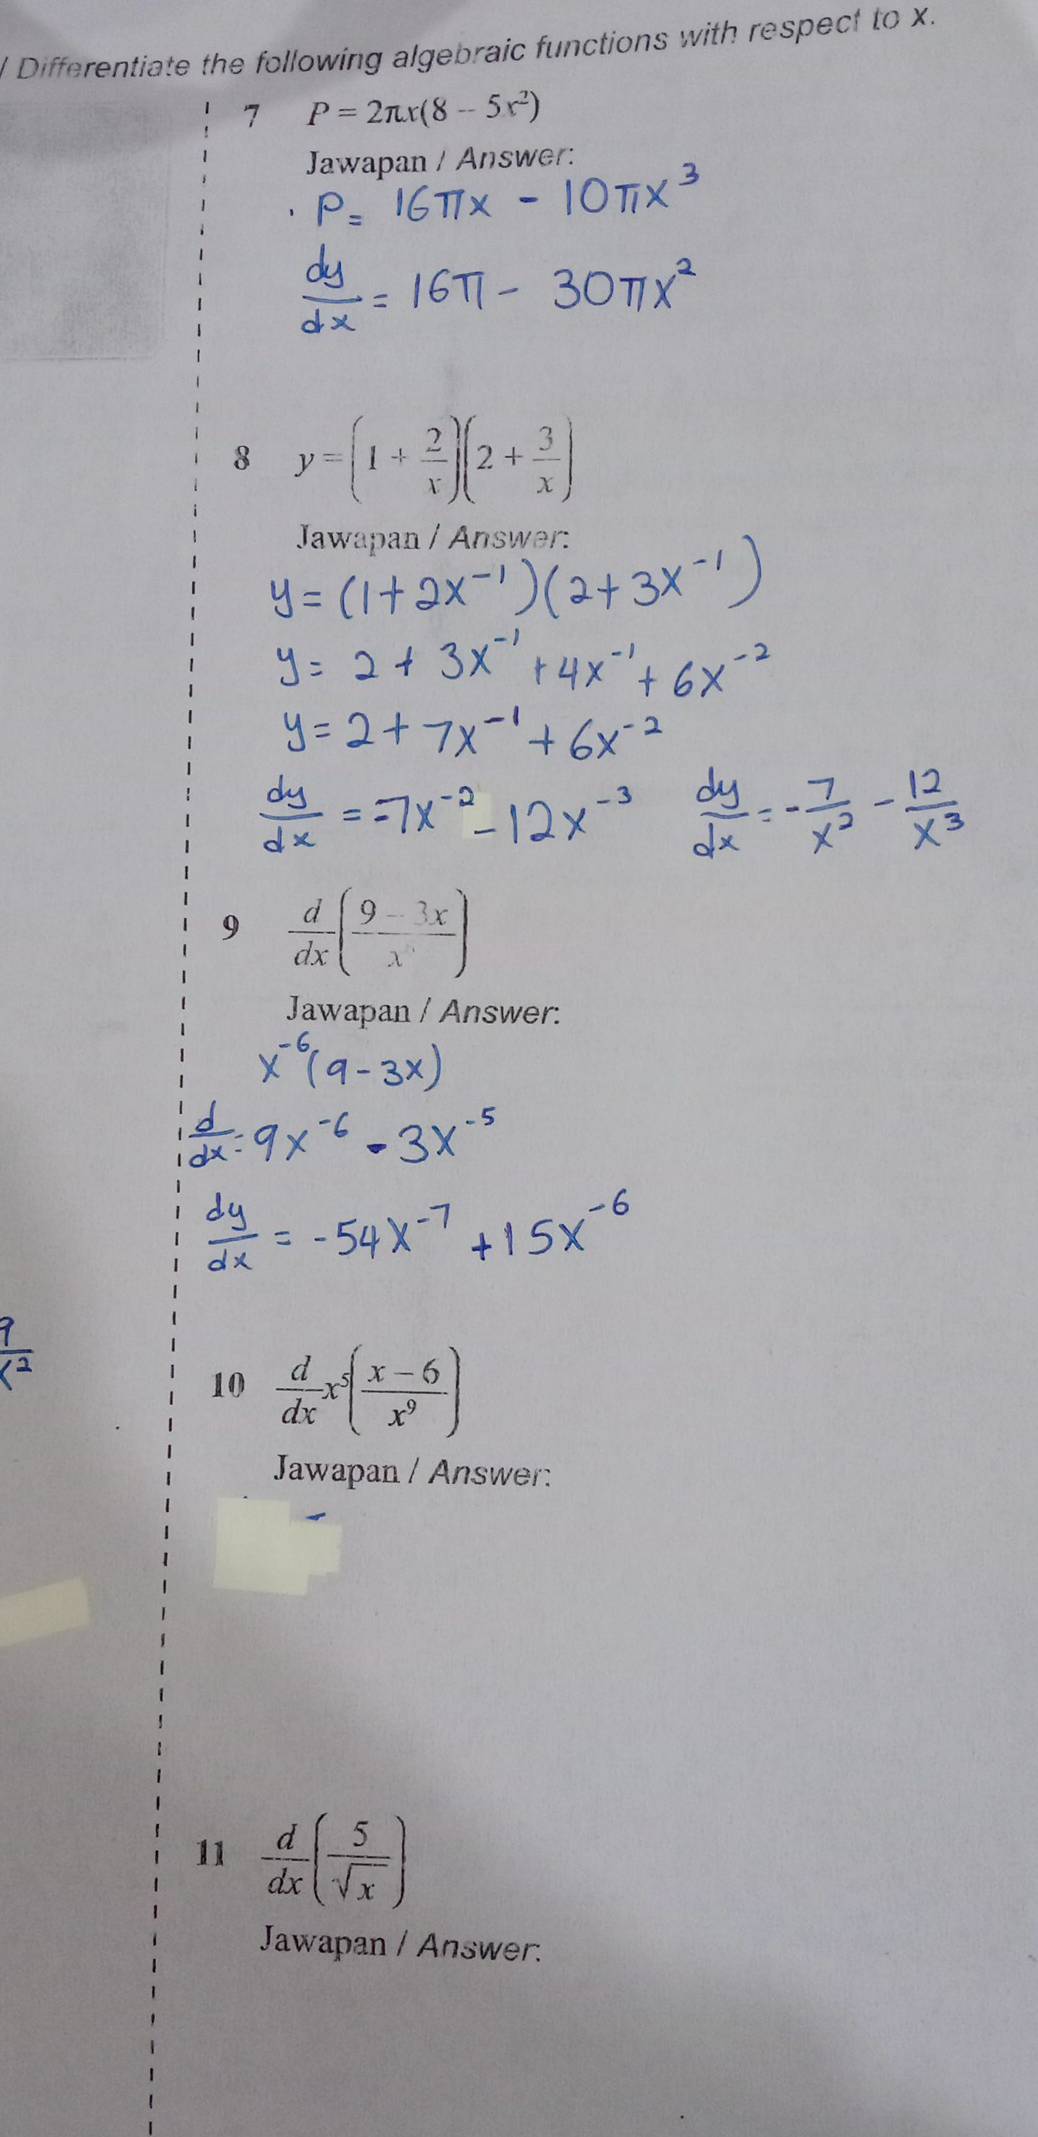 / Differentiate the following algebraic functions with respect to x.
7 P = 2πx(8 – 5x²)
Jawapan / Answer:
P = 16πx - 10πx³
dy/dx = 16π - 30πx²
8 y = (1 + 2/x)(2 + 3/x)
Jawapan / Answer:
y = (1+2x⁻¹)(2+3x⁻¹)
y = 2 + 3x⁻¹ + 4x⁻¹ + 6x⁻²
y = 2 + 7x⁻¹ + 6x⁻²
dy/dx = -7x⁻² - 12x⁻³ dy/dx = -7/x² - 12/x³
9 d/dx (9 – 3x / x⁶)
Jawapan / Answer:
x⁻⁶(9-3x)
d/dx = 9x⁻⁶ - 3x⁻⁵
dy/dx = -54x⁻⁷ + 15x⁻⁶
10 d/dx x⁵(x – 6 / x⁹)
Jawapan / Answer:
11 d/dx (5/√x)
Jawapan / Answer: